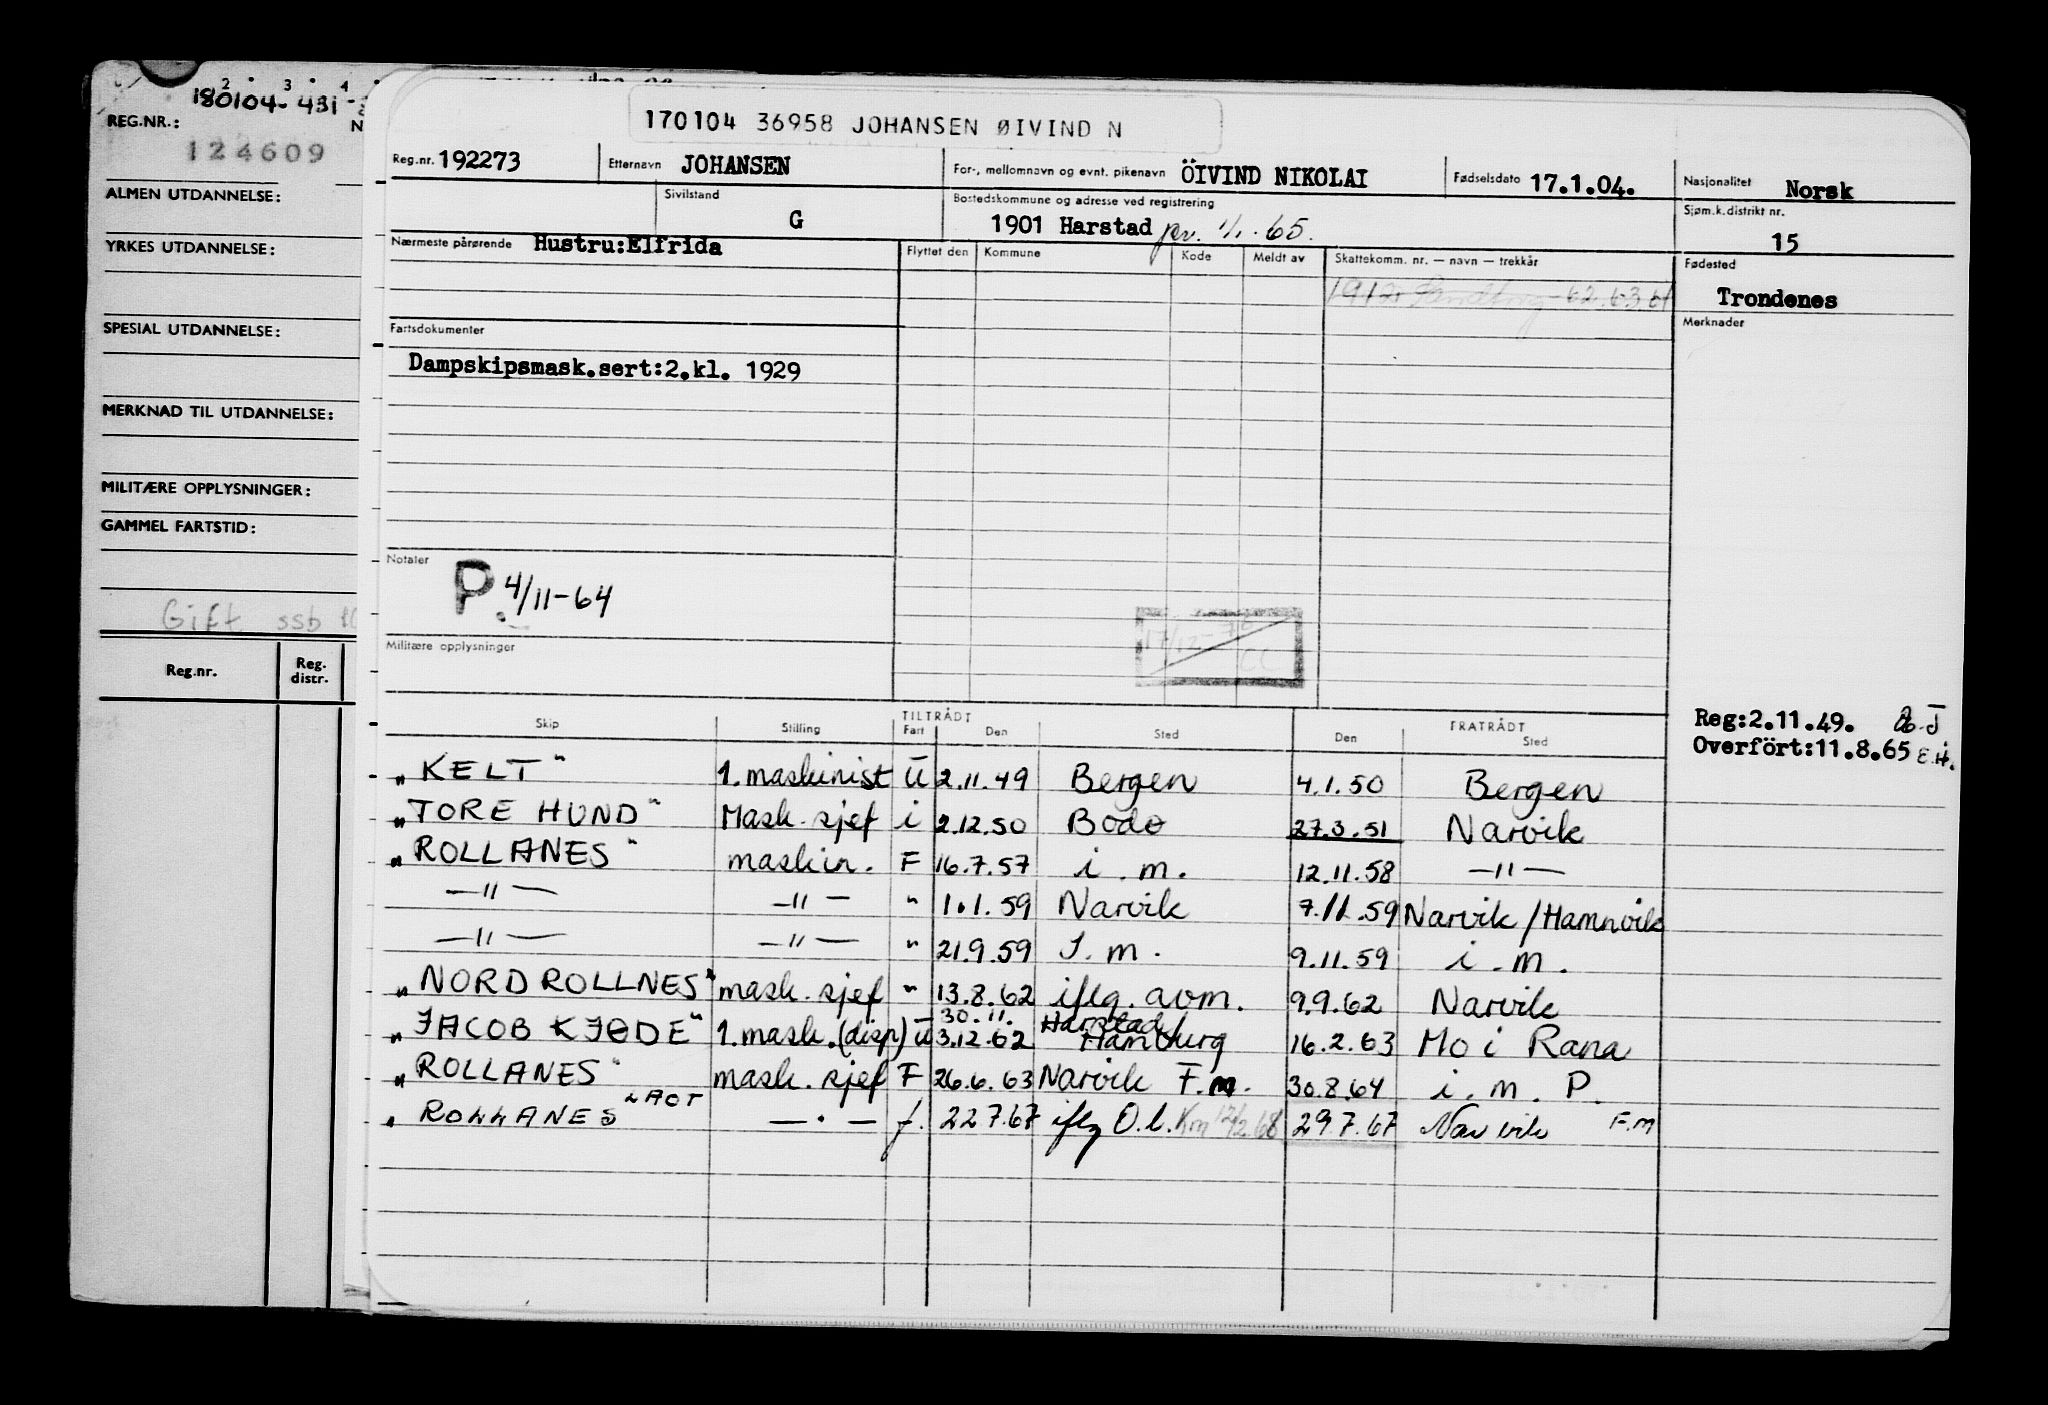 180104-431-
2 3 4
REG.NR.:
N
124609
ALMEN UTDANNELSE:
YRKES UTDANNELSE:
SPESIAL UTDANNELSE:
MERKNAD TIL UTDANNELSE:
MILITÆRE OPPLYSNINGER:
GAMMEL FARTSTID:
Gift ssb
Reg.nr. Reg. distr.
170104 36958 JOHANSEN ØIVIND N
Reg.nr. 192273 Etternavn JOHANSEN For-, mellomnavn og evnt. pikenavn ÖIVIND NIKOLAI Fødselsdato 17.1.04. Nasjonalitet Norsk
Sivilstand G Bostedskommune og adresse ved registrering 1901 Harstad pr. 1/1-65. Sjøm.k.distrikt nr. 15
Nærmeste pårørende Hustru:Elfrida Flyttet den Kommune Kode Meldt av Skattekomm. nr. — navn — trekkår Fødested Trondenes
1912 62.63.64
Fartsdokumenter Merknader
Dampskipsmask.sert:2.kl. 1929
Notater
P. 4/11-64
17/12-76 CC
Militære opplysninger
Reg:2.11.49.
Overført:11.8.65 E.H.
Skip Stilling TILTRÅDT Fart Den Sted FRATRÅDT Den Sted
„KELT" 1.maskinist U 2.11.49 Bergen 4.1.50 Bergen
„TORE HUND" Mask.sjef i 2.12.50 Bodø 27.3.51 Narvik
„ROLLANES" maskin. F 16.7.57 i.m. 12.11.58 —"—
—"— —"— " 1.1.59 Narvik 7.11.59 Narvik/Hamnvik
—"— —"— " 21.9.59 I.m. 9.11.59 i.m.
„NORD ROLLNES" mask.sjef " 13.8.62 iflg.avm. 9.9.62 Narvik
30.11. Harstad/
„JACOB KJØDE" 1.mask.(disp) u 3.12.62 Hamburg 16.2.63 Mo i Rana
„ROLLANES" mask.sjef F 26.6.63 Narvik F.m. 30.8.64 i.m. P.
„ROLLANES" LAOT — . — f. 22 7.67 iflg O.l. Km 12/2.68 29 7.67 Narvik F.M